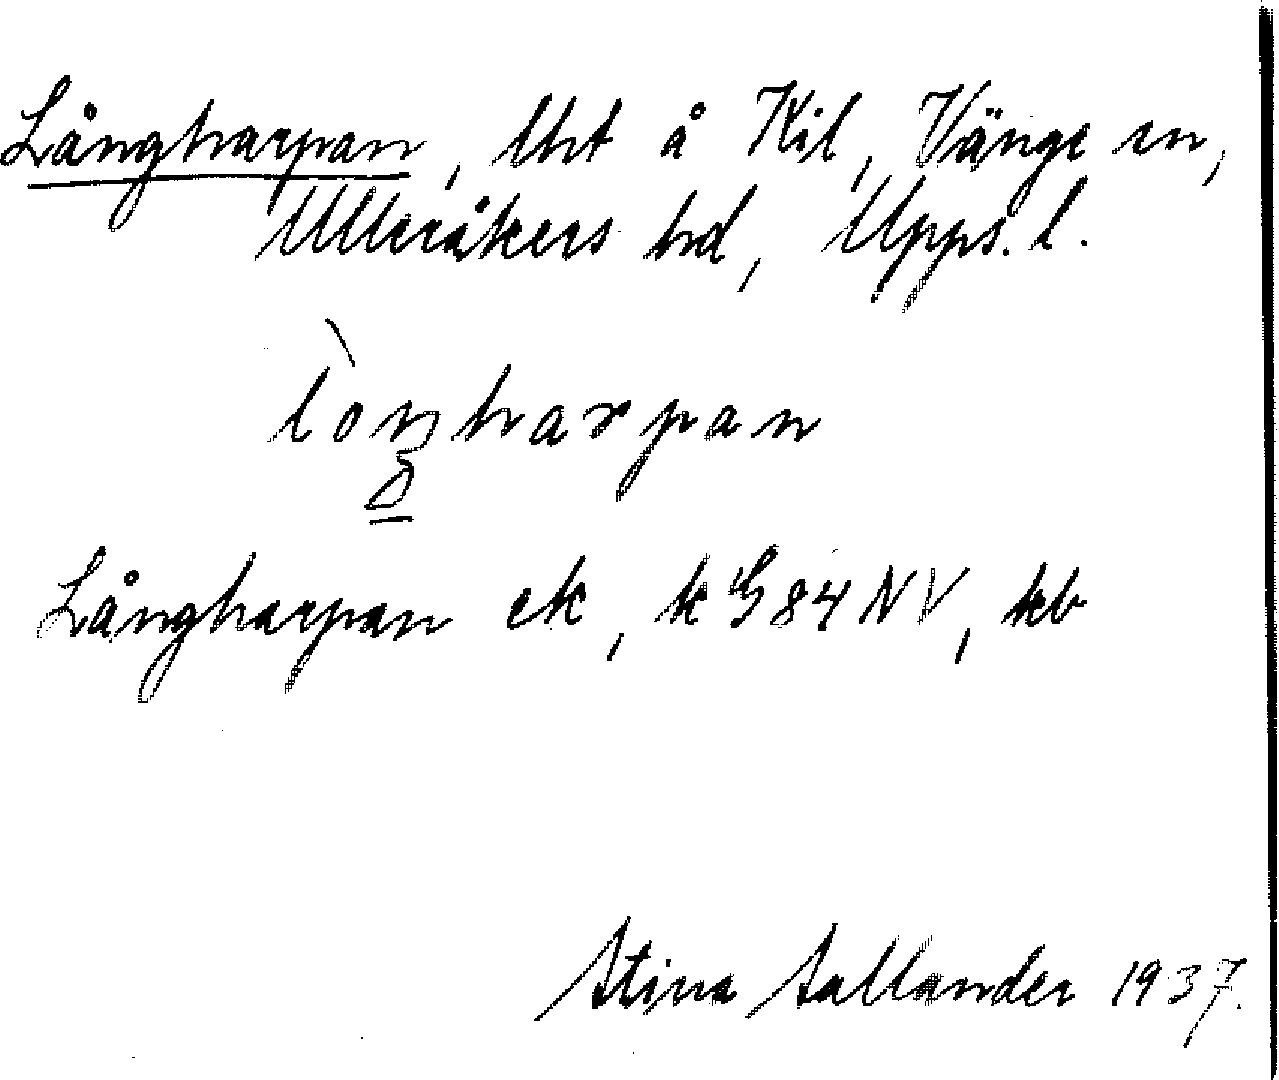 Långharpan, lht å Kil, Vänge sn,
Ulleråkers hd, Upps. l.
lòŋharpan
Långharpan ek, k G84NV, kb
Stina Sallander 1937.